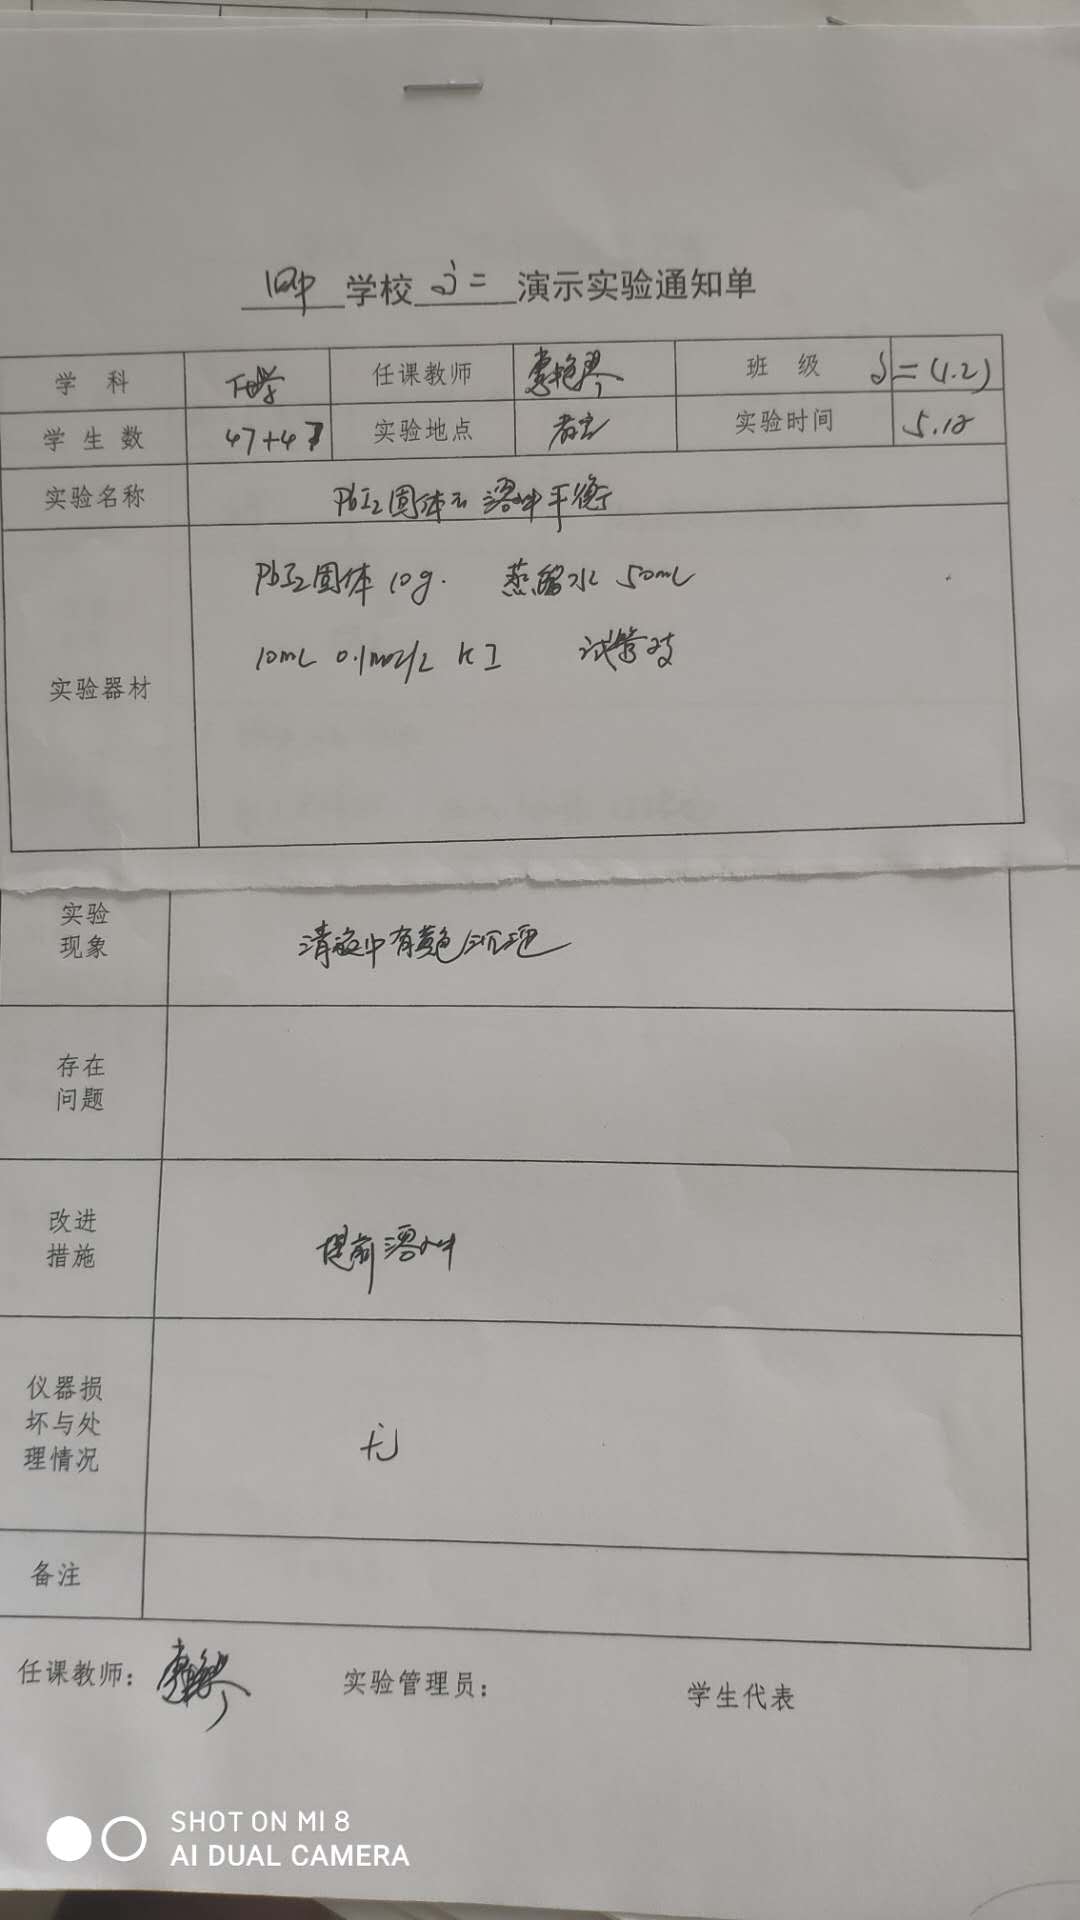 学校 高二 演示实验通知单
学科 化学 任课教师 班级 高二(1.2)
学生数 47+47 实验地点 教室 实验时间 5.18
实验名称 PbI2固体的溶解平衡
PbI2固体 10g. 蒸馏水 50mL
10mL 0.1mol/L KI 试管2支
实验器材
实验
现象
清液中有黄色沉淀
存在
问题
改进
措施
提前溶解
仪器损
坏与处
理情况
无
备注
任课教师： 实验管理员： 学生代表
SHOT ON MI 8
AI DUAL CAMERA